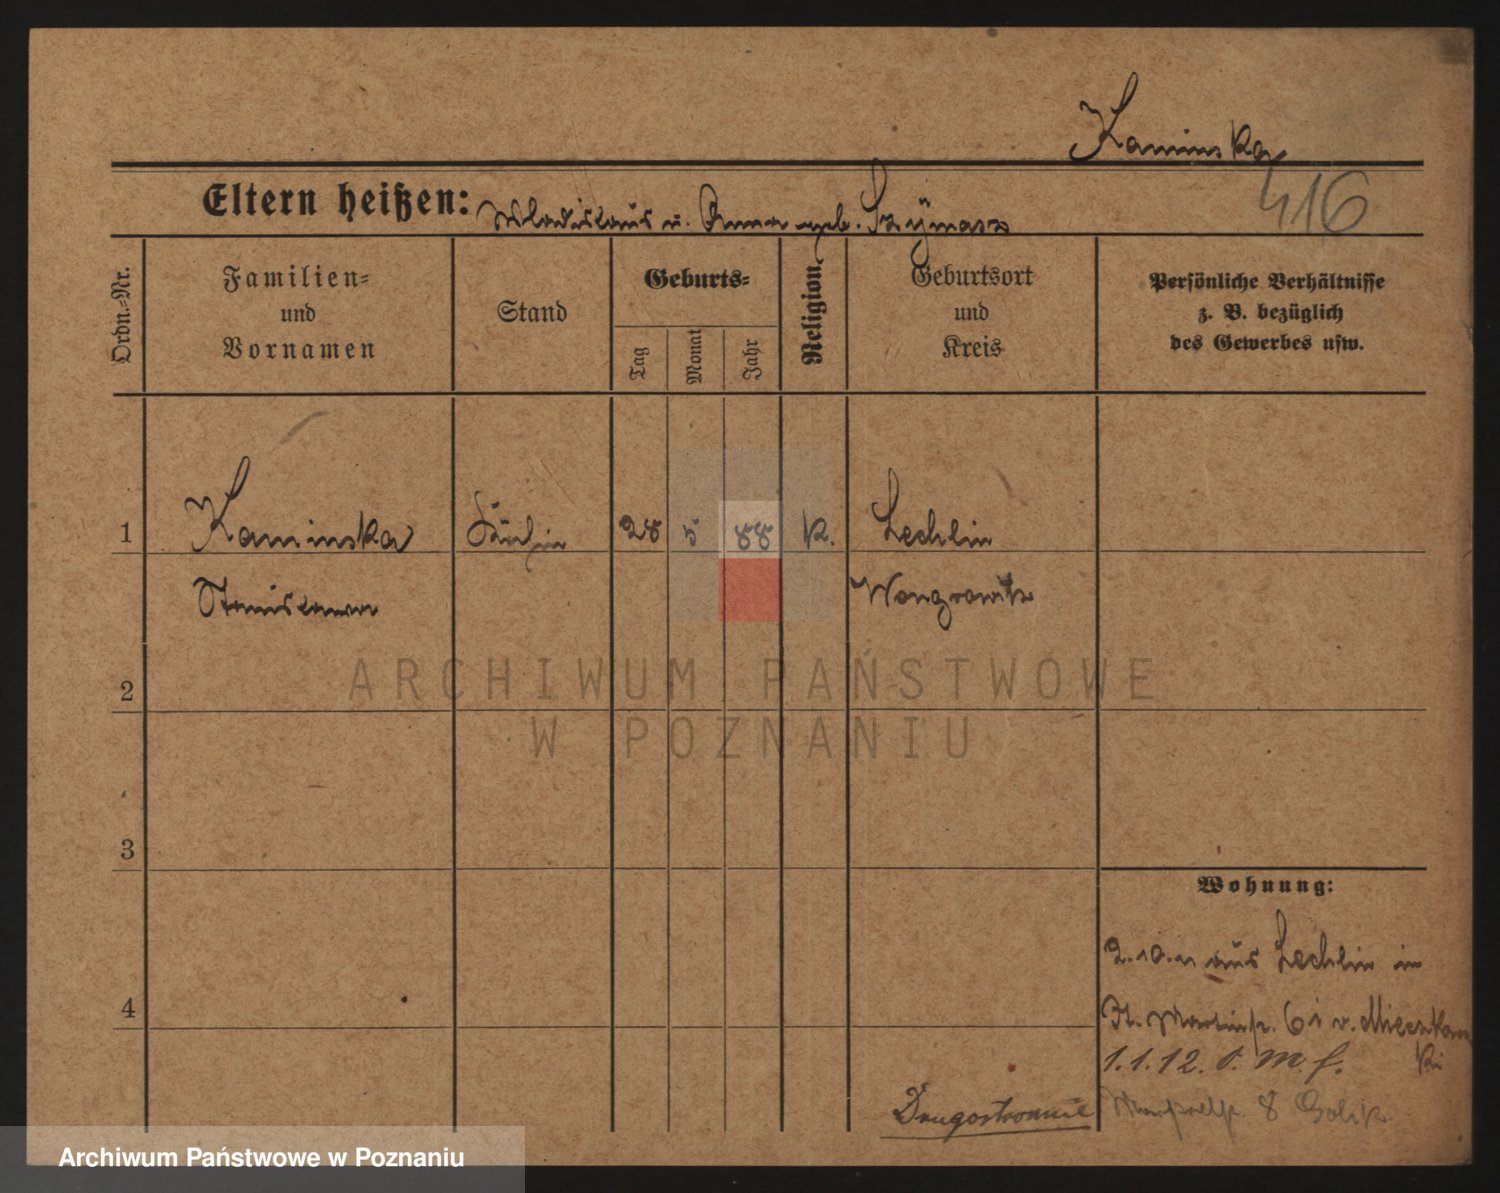 Kaminska
416
Eltern heißen: Wladislaus u. Anna geb. Szymasz
Ordn.-Nr.
Familien-
und
Vornamen
Stand
Geburts-
Tag
Monat
Jahr
Religion
Geburtsort
und
Kreis
Persönliche Verhältnisse
z. B. bezüglich
des Gewerbes usw.
1 Kaminska 28 5 88 K. Lechlin
Stanislawa Wongrowitz
2
3
4
Wohnung:
2.10.11 aus Lechlin in
St. Martinstr. 61 v. Mieczkow
ki
1.1.12.
8
Drugostronnie
ARCHIWUM PAŃSTWOWE
W POZNANIU
Archiwum Państwowe w Poznaniu